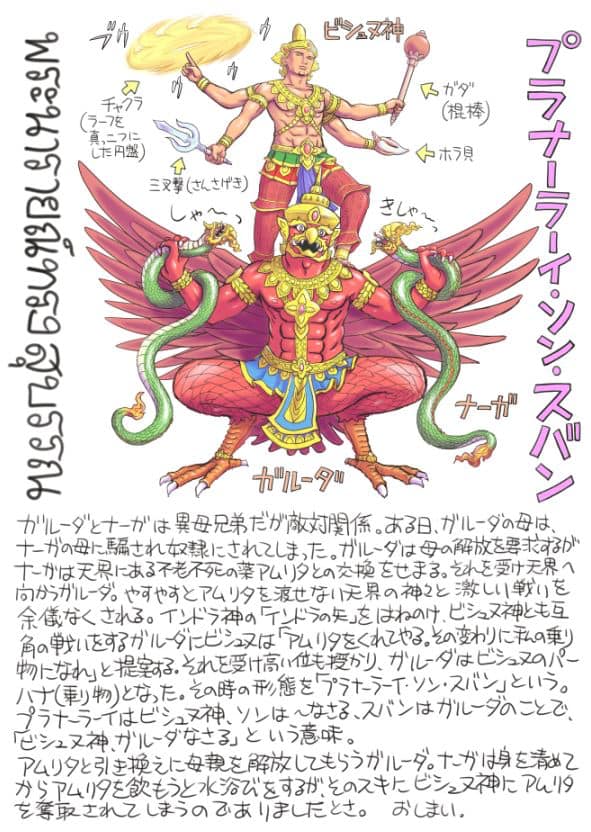 プラナーラーイ・ソン・スバン
พระนารายณ์ทรงสุบรรณ
ビシュヌ神
ブゥ
ブゥ
チャクラ
(ラーフを
真っ二つに
した円盤)
三叉撃(さんさげき)
ガダ
(棍棒)
ホラ貝
しゃ〜っ
きしゃ〜っ
ナーガ
ガルーダ
ガルーダとナーガは異母兄弟だが敵対関係。ある日、ガルーダの母は、
ナーガの母に騙され奴隷にされてしまった。ガルーダは母の解放を要求するが
ナーガは天界にある不老不死の薬アムリタとの交換をせまる。それを受け天界へ
向からガルーダ。やすやすとアムリタを渡せない天界の神々と激しい戦いを
余儀なくされる。インドラ神の「インドラの矢」をはねのけ、ビシュヌ神とも互
角の戦いをするガルーダにビシュヌは「アムリタをくれてやる。その変わりに私の乗り
物になれ」と提案する。それを受け高い位も授かり、ガルーダはビシュヌのバー
ハナ(乗り物)となった。その時の形態を「プラナーラーイ・ソン・スバン」という。
プラナーライはビシュヌ神、ソンは〜なさる、スバンはガルーダのことで、
「ビシュヌ神、ガルーダなさる」という意味。
アムリタと引き換えに母親を解放してもらうガルーダ。ナーガは身を清めて
からアムリタを飲もうと水浴びをするが、そのスキにビシュヌ神にアムリタ
を奪取されてしまうのでありましたとさ。 おしまい。